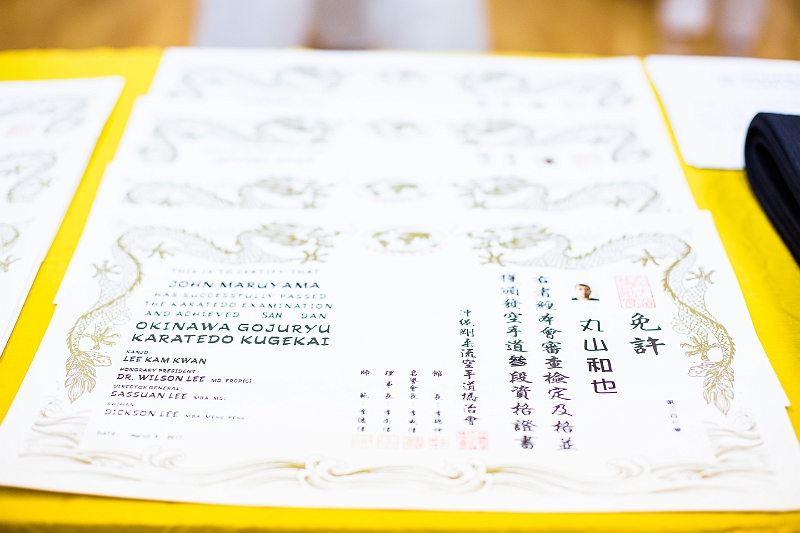 THIS IS TO CERTIFY THAT
JOHN MARUYAMA
HAS SUCCESSFULLY PASSED
THE KARATEDO EXAMINATION
AND ACHIEVED SAN DAN
OKINAWA GOJURYU
KARATEDO KUGEKAI
KANJO
LEE KAM KWAN
HONORARY PRESIDENT:
DR. WILSON LEE MD. FRCP(C)
DIRECTOR GENERAL
SASSUAN LEE MBA. MSI
SHIHAN
DICKSON LEE MBA. MENG. PENG
DATE March 4, 2017
免許
丸山和也
右者經本會審查檢定及格並
獲頒發空手道參段資格證書
沖繩剛柔流空手道協治會
館長
名譽會長
理事長
師範